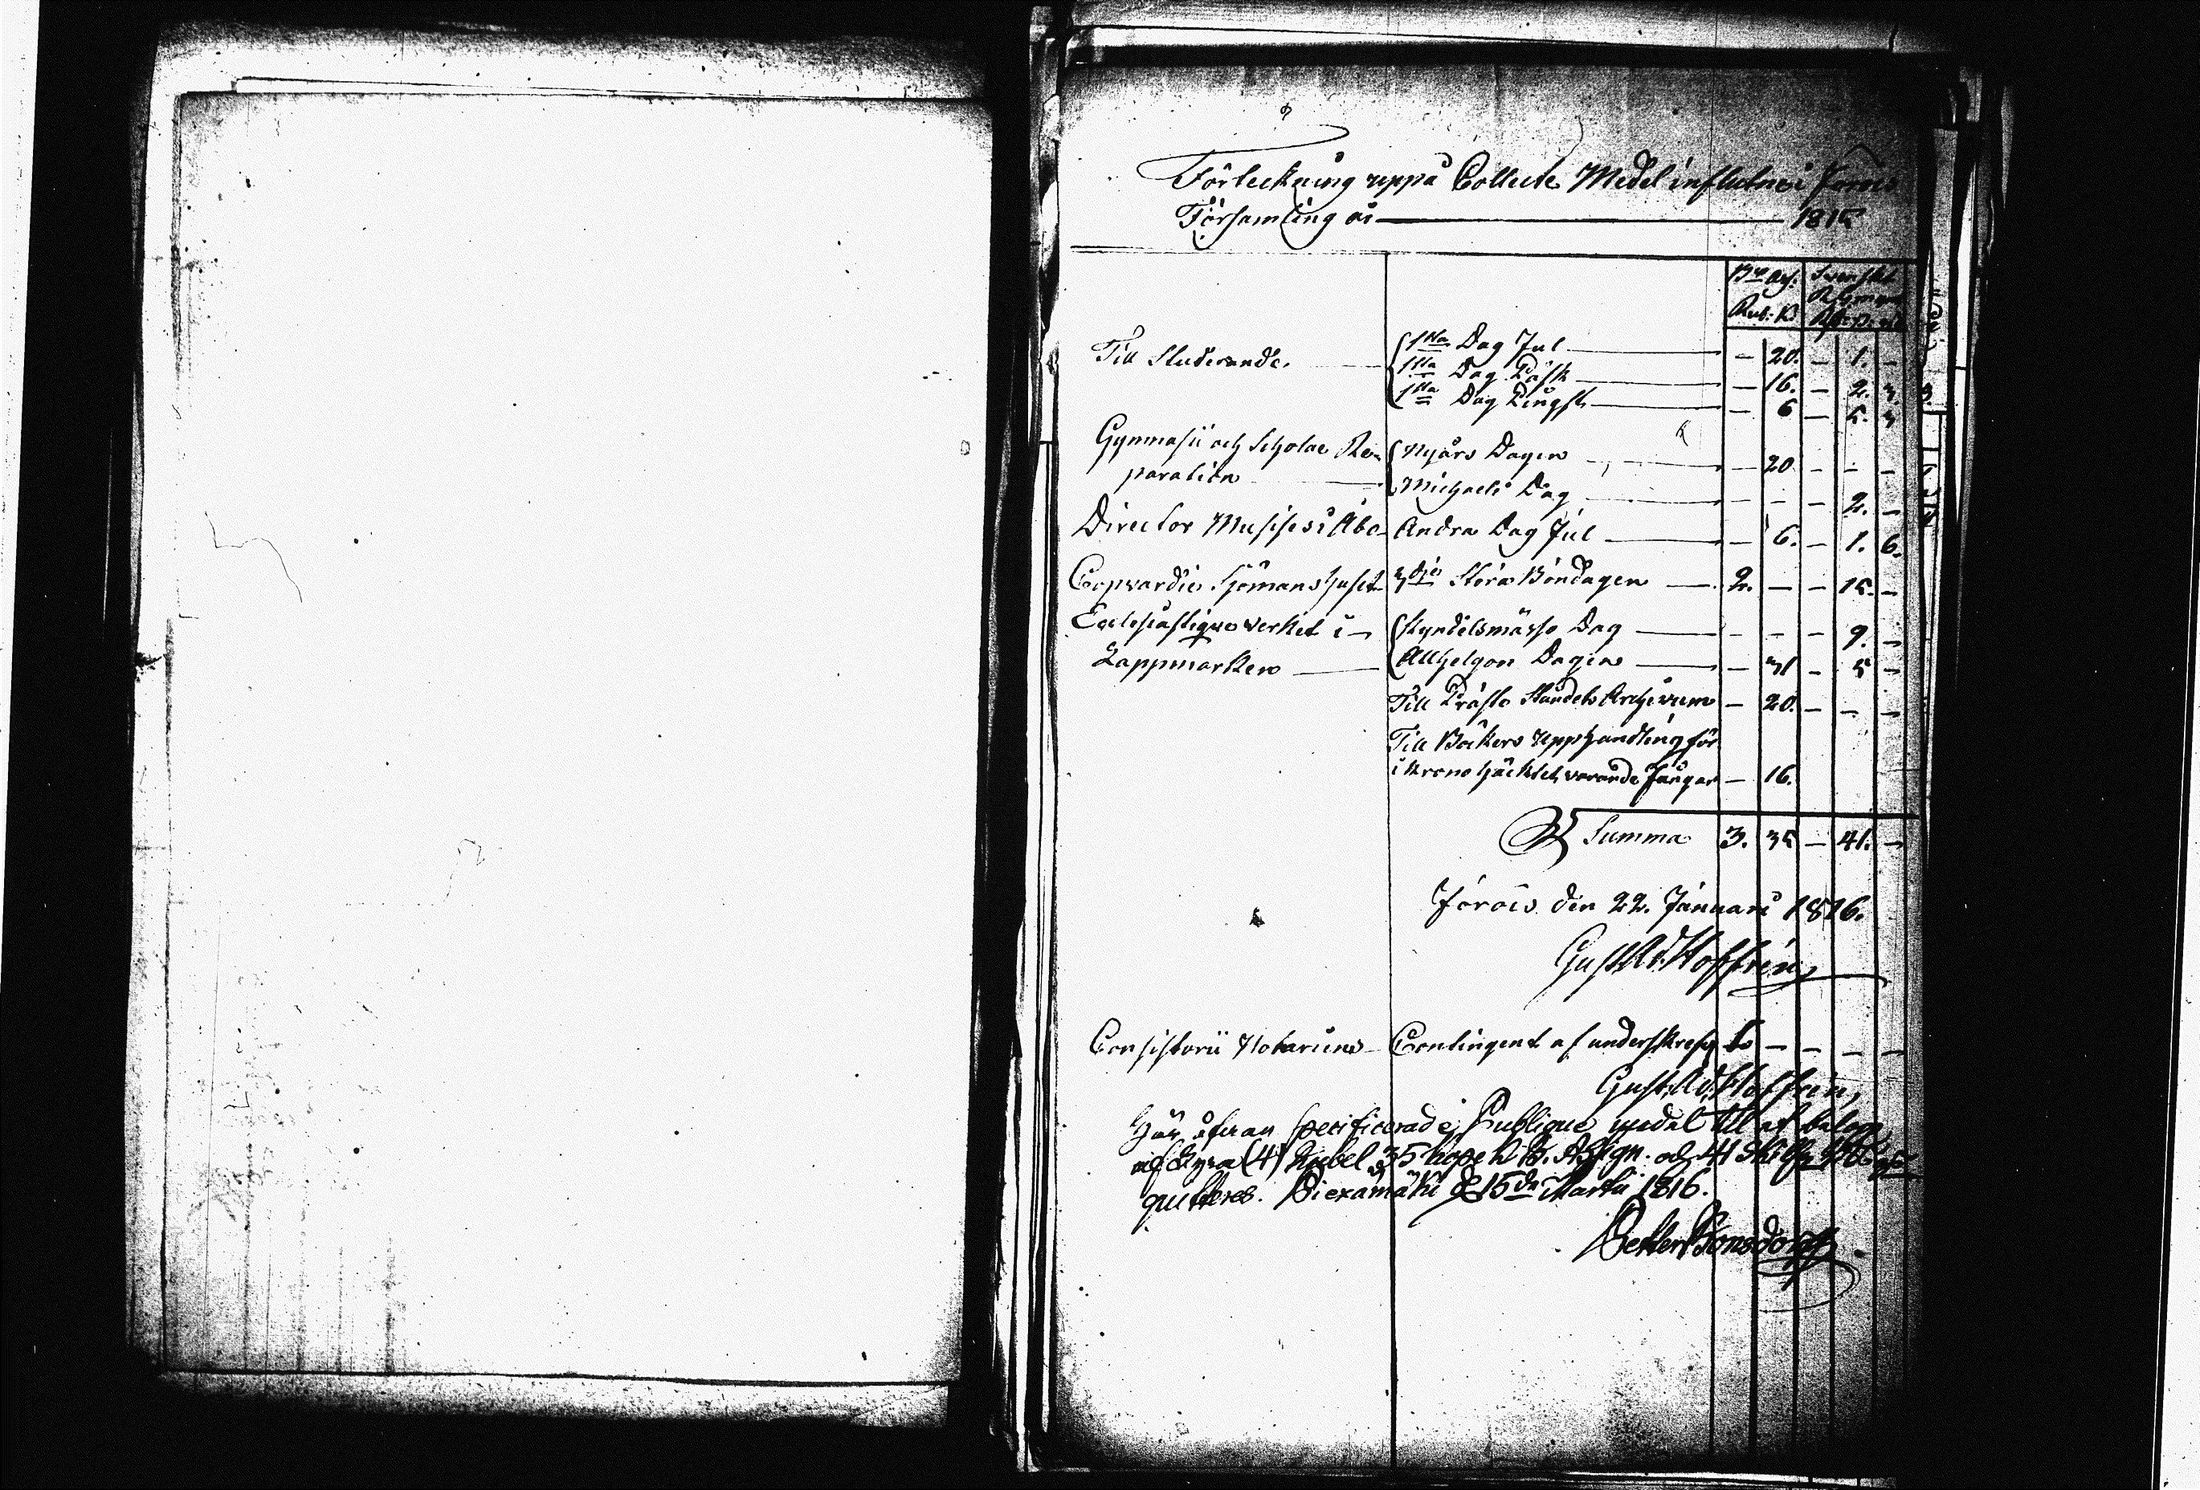 Förteckning uppå Collecte Medel influtne i Jorois
Församling år — 1815
Bco Ass: Svenskt
Rub: K
Till Studerande — 1sta Dag Jul — — 20. — 1. —
1sta Dag Påsk — — 16. — 2. 3.
1sta Dag Pingst — — 6 — 5. 3
Gymnasii och Scholae Re- Nyårs Dagen — — 20 — — —
paration — Michaeli Dag — — — — 2. —
Director Musices i Åbo Andra Dag Jul — — 6. — 1. 6.
Copvardie Sjömanshuset 3dje Stora Böndagen — 2. — — 15. —
Ecclesiastique verket i — Kyndelsmässo Dag — — — — 9. —
Lappmarken — Allhelgon Dagen — — 31 — 5 —
Till Präste Ståndets Archivum — 20. — — —
Till Böckers Upphandling för
i Krono häcktet varande Fångar — 16.
Summa 3. 35 — 41. —
Jorois den 22. Januari 1816.
Gust. Ad. Hoffrén
Consistorii Notarius — Contingent af underskrefn 1 — — — —
Gust. Ad. Hoffrén
Här ofvan specificerade Publique medel till et belopp
af Fyra (4) Rubel 35 kopek B. Assign. och 41 Skillg
quitteres. Piexämäki d 15de Martii 1816.
Petter Bonsdorff